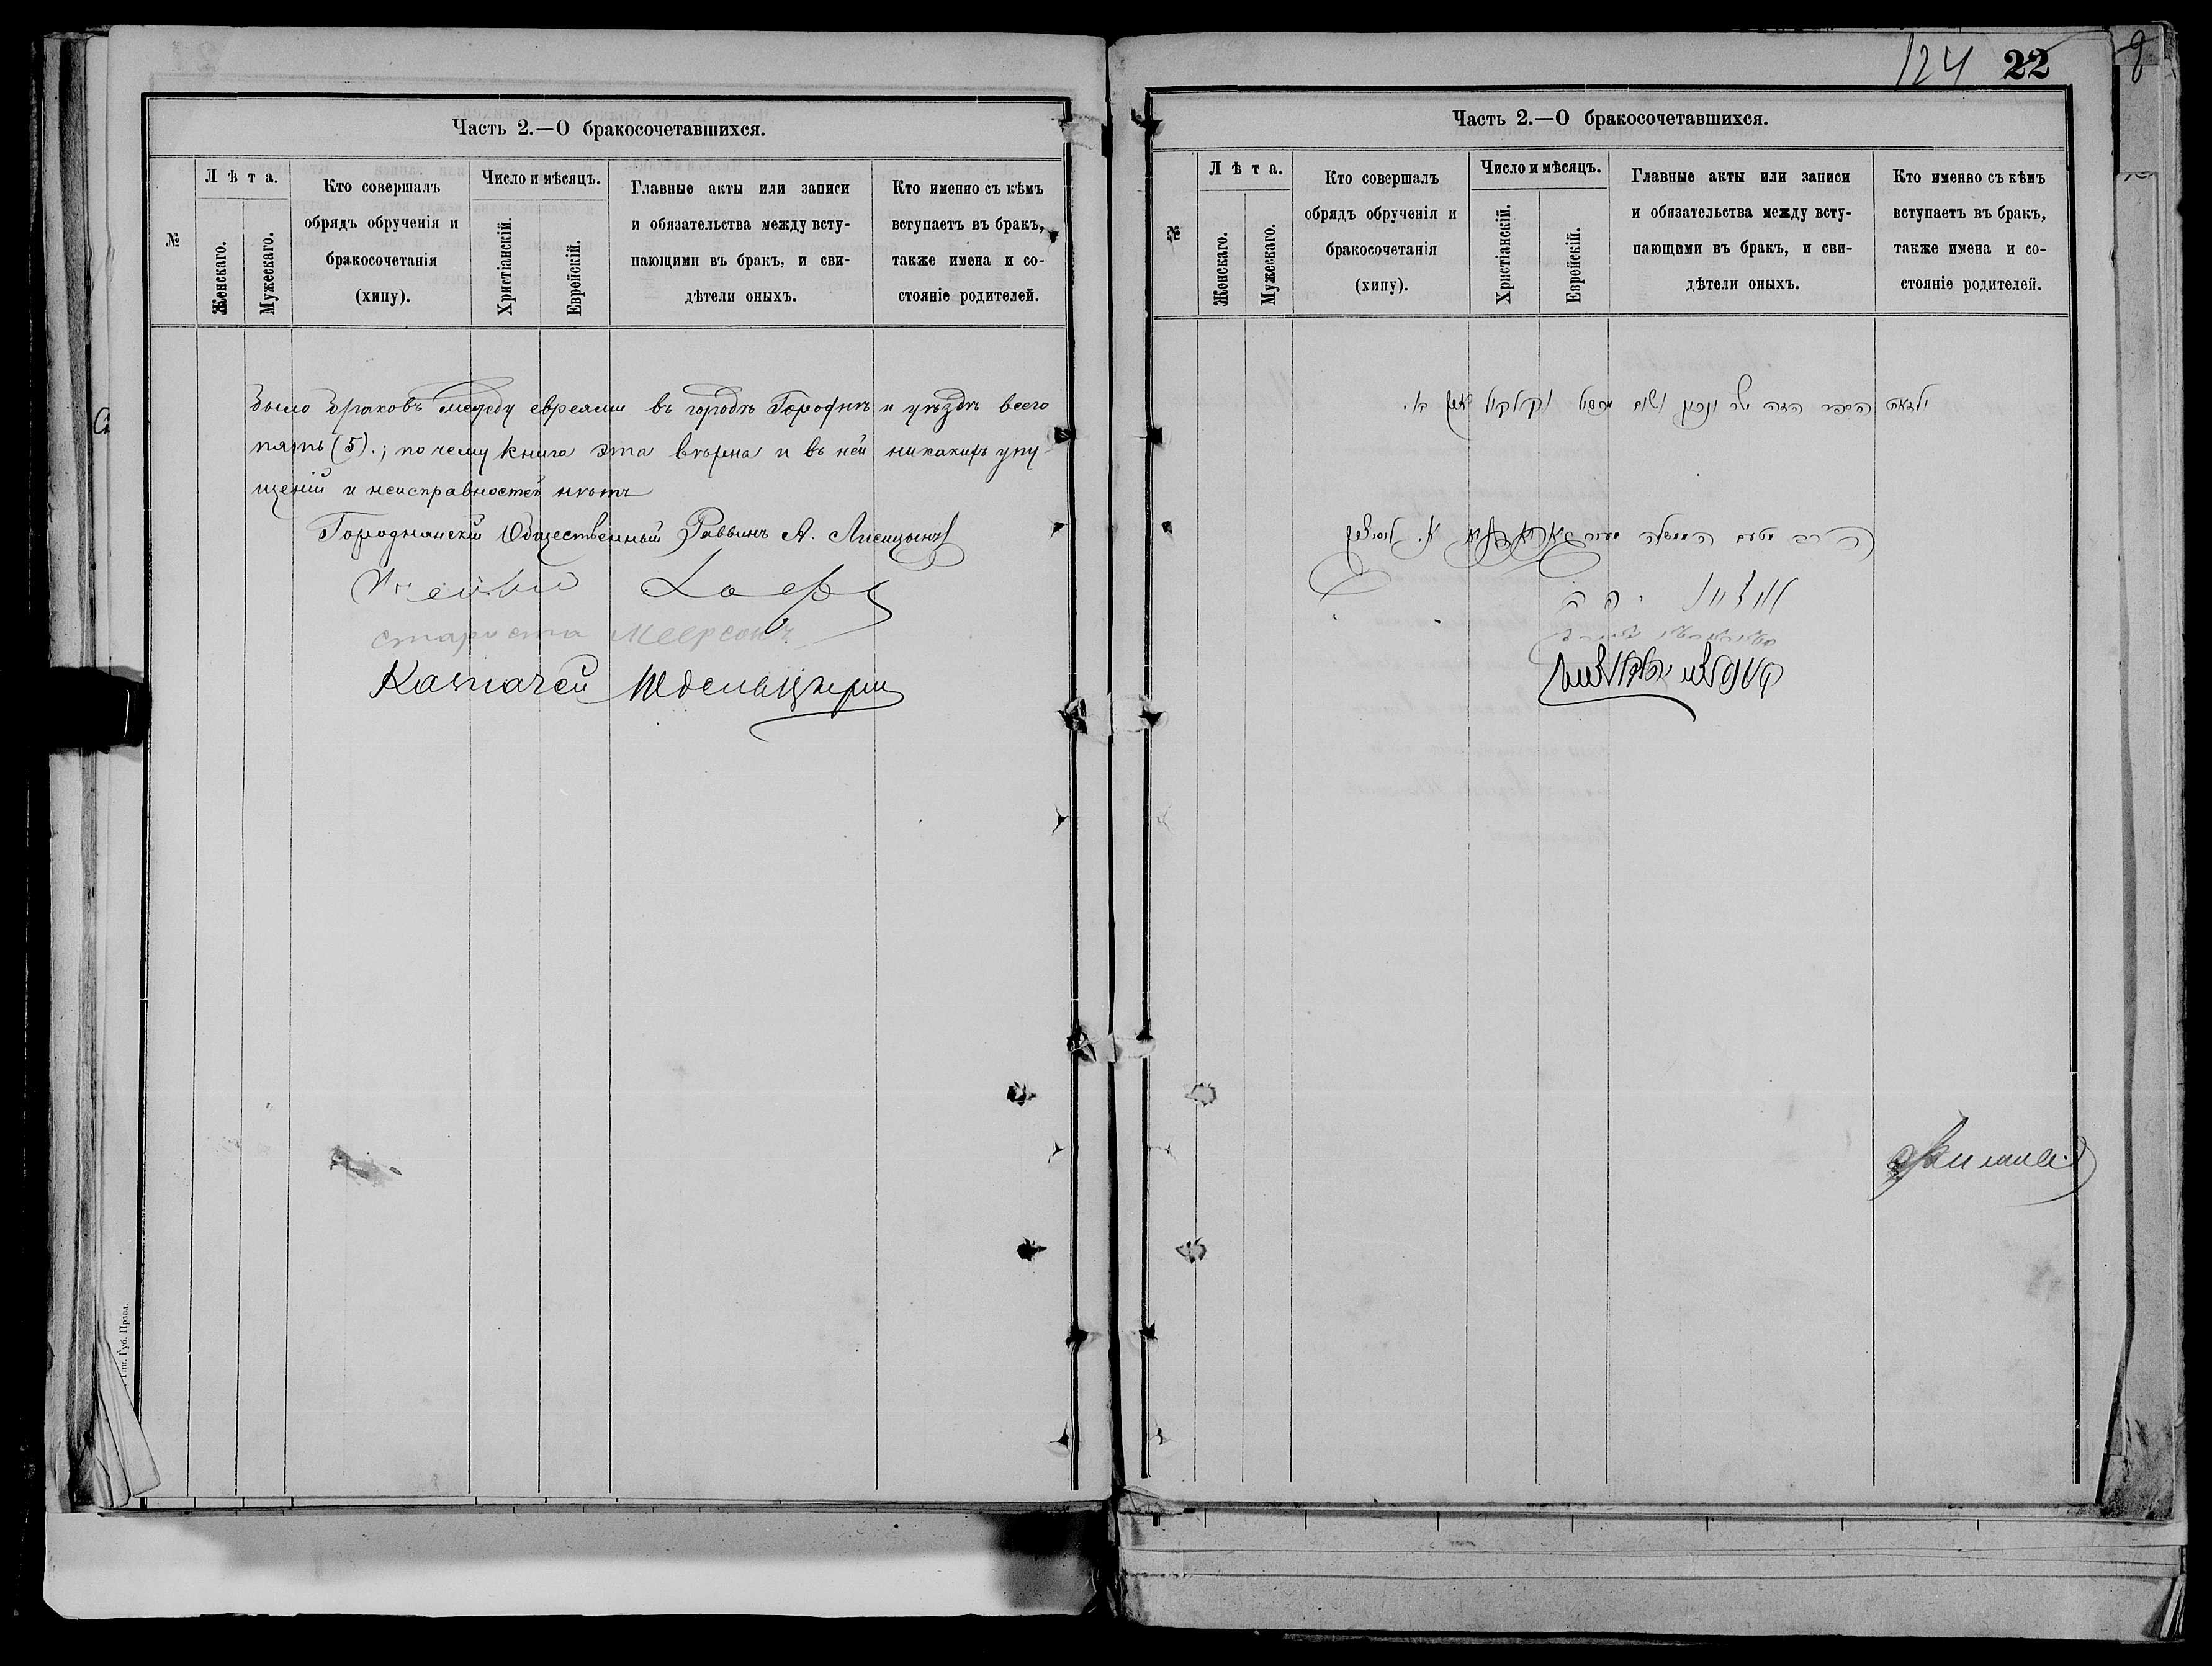 Часть 2.—О бракосочетавшихся.
№
Лѣта.
Женскаго.
Мужескаго.
Кто совершалъ
обрядъ обрученія и
бракосочетанія
(хипу).
Число и мѣсяцъ.
Христіанскій.
Еврейскій.
Главные акты или записи
и обязательства между всту-
пающими въ бракъ, и сви-
дѣтели оныхъ.
Кто именно съ кѣмъ
вступаетъ въ бракъ,
также имена и со-
стояніе родителей.
было браковъ между евреями въ городѣ Городнѣ и уѣздѣ всего
пять (5).; почему книга эта вѣрна и въ ней никакихъ упу-
щеній и неисправностей нѣтъ
Городнянскій Общественный Раввинъ А. Лисицынъ
староста Меерсонъ
Казначей
Тип. Губ. Правл.
124 22
Часть 2.—О бракосочетавшихся.
№
Лѣта.
Женскаго.
Мужескаго.
Кто совершалъ
обрядъ обрученія и
бракосочетанія
(хипу).
Число и мѣсяцъ.
Христіанскій.
Еврейскій.
Главные акты или записи
и обязательства между всту-
пающими въ бракъ, и сви-
дѣтели оныхъ.
Кто именно съ кѣмъ
вступаетъ въ бракъ,
также имена и со-
стояніе родителей.
הספר הזה ושום
הרב מטעם הממשלה א.